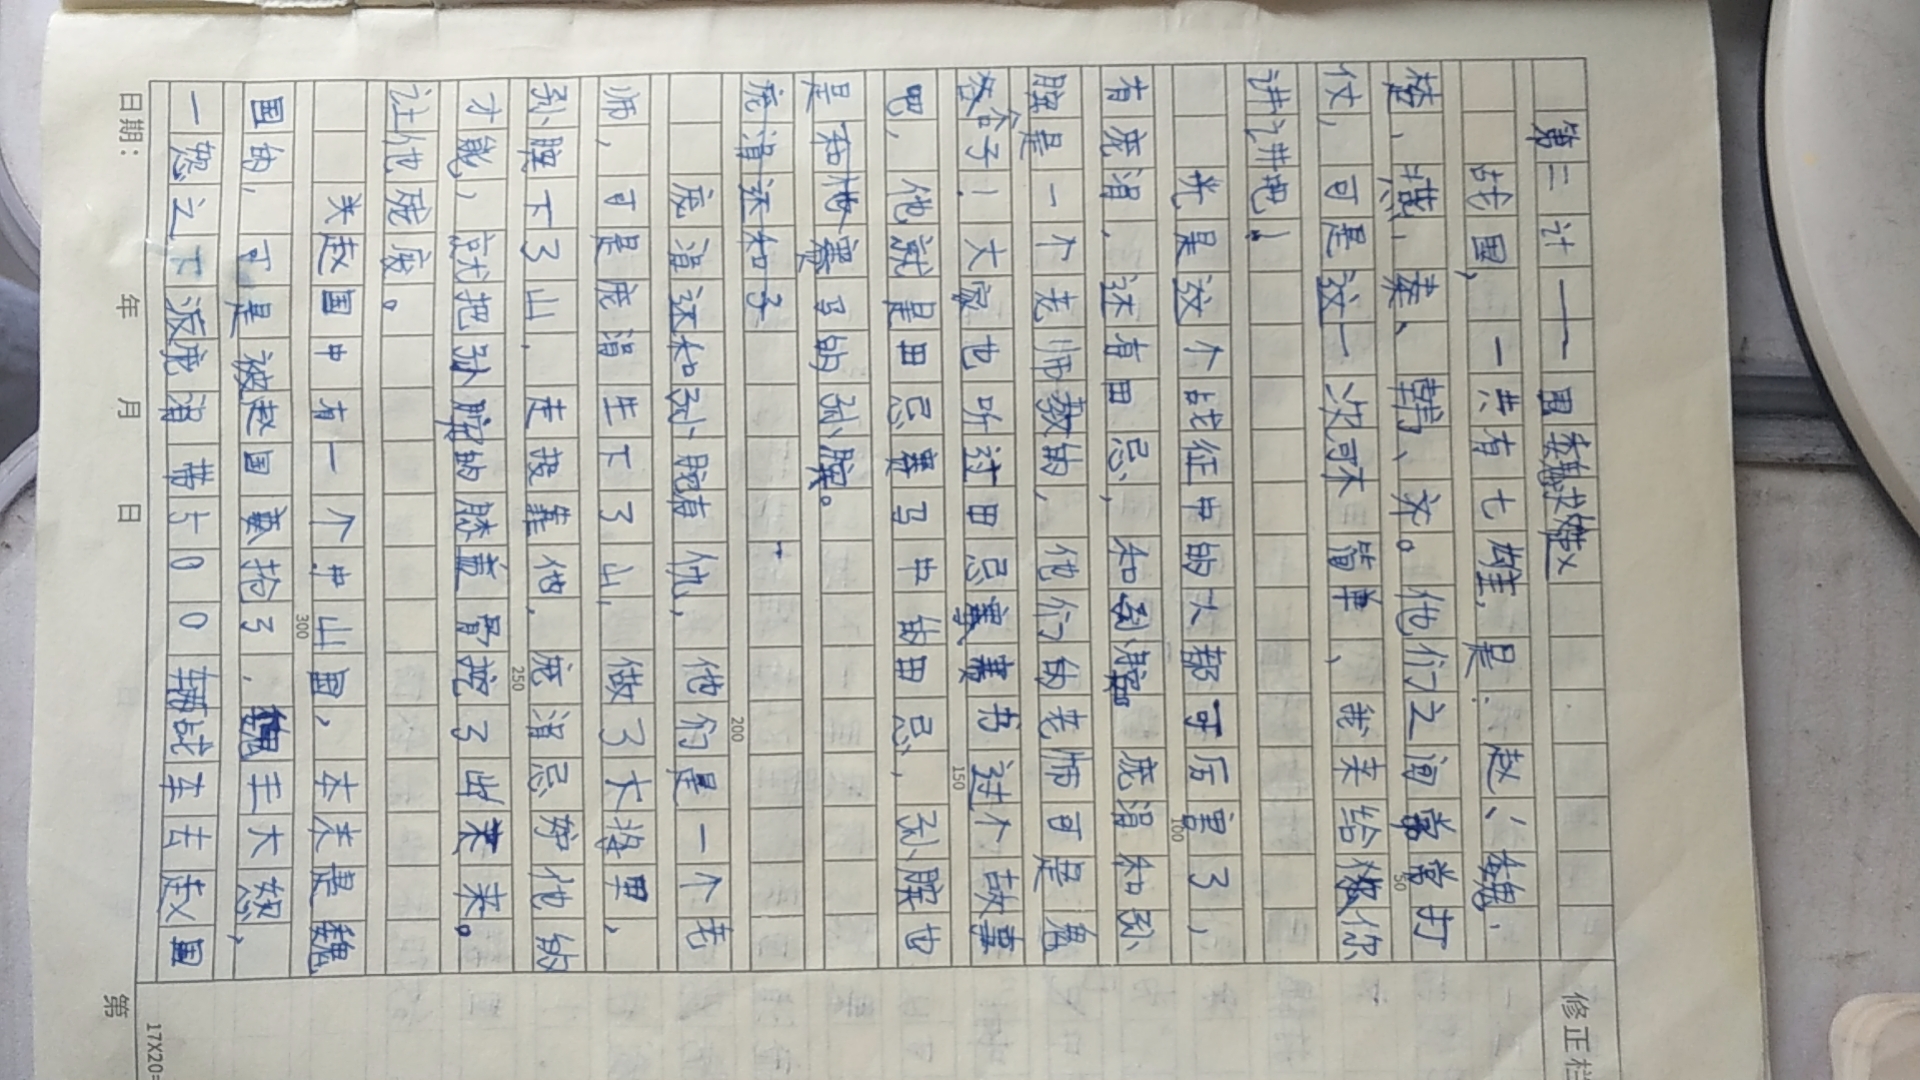 第二计——围魏救赵
战国,一共有七雄,是:赵、魏、
楚、燕、秦、韩、齐。他们之间常常打
仗,可是这一次可不简单,我来给你
讲讲吧!
光是这个战征中的人都可厉害了,
有庞涓,还有田忌,和孙膑。庞涓和孙
膑是一个老师教的,他们的老师可是鬼
谷子!大家也听过田忌赛马这个故事
吧,他就是田忌赛马中的田忌,孙膑也
是和他赛马的孙膑。
庞涓还和孙
庞涓还和孙膑有仇,他们是一个老
师,可是庞涓先下了山,做了大将军,
孙膑下了山,走投靠他,庞涓忌妒他的
才能,就把孙膑的膝盖骨挖了出来。
让他残废。
关赵国中有一个中山国,本来是魏
国的,可是被赵国抢了,魏王大怒,
一怒之下派庞涓带500辆战车去赵国
50
100
150
200
250
300
日期: 年 月 日
第
修正栏
17X20=